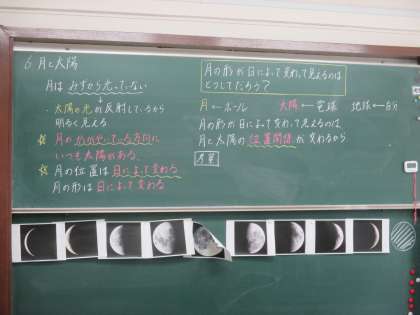 6 月と太陽
月は みずから光っていない
・太陽の光が反射しているから
明るく見える
☆月のかがやいている方向に
いつも太陽がある。
☆月の位置は日によって変わる
月の形は日によって変わる
月の形が日によって変わって見えるのは
どうしてだろう?
月←ボール 太陽←電球 地球←自分
月の形が日によって変わって見えるのは
月と太陽の位置関係が変わるから。